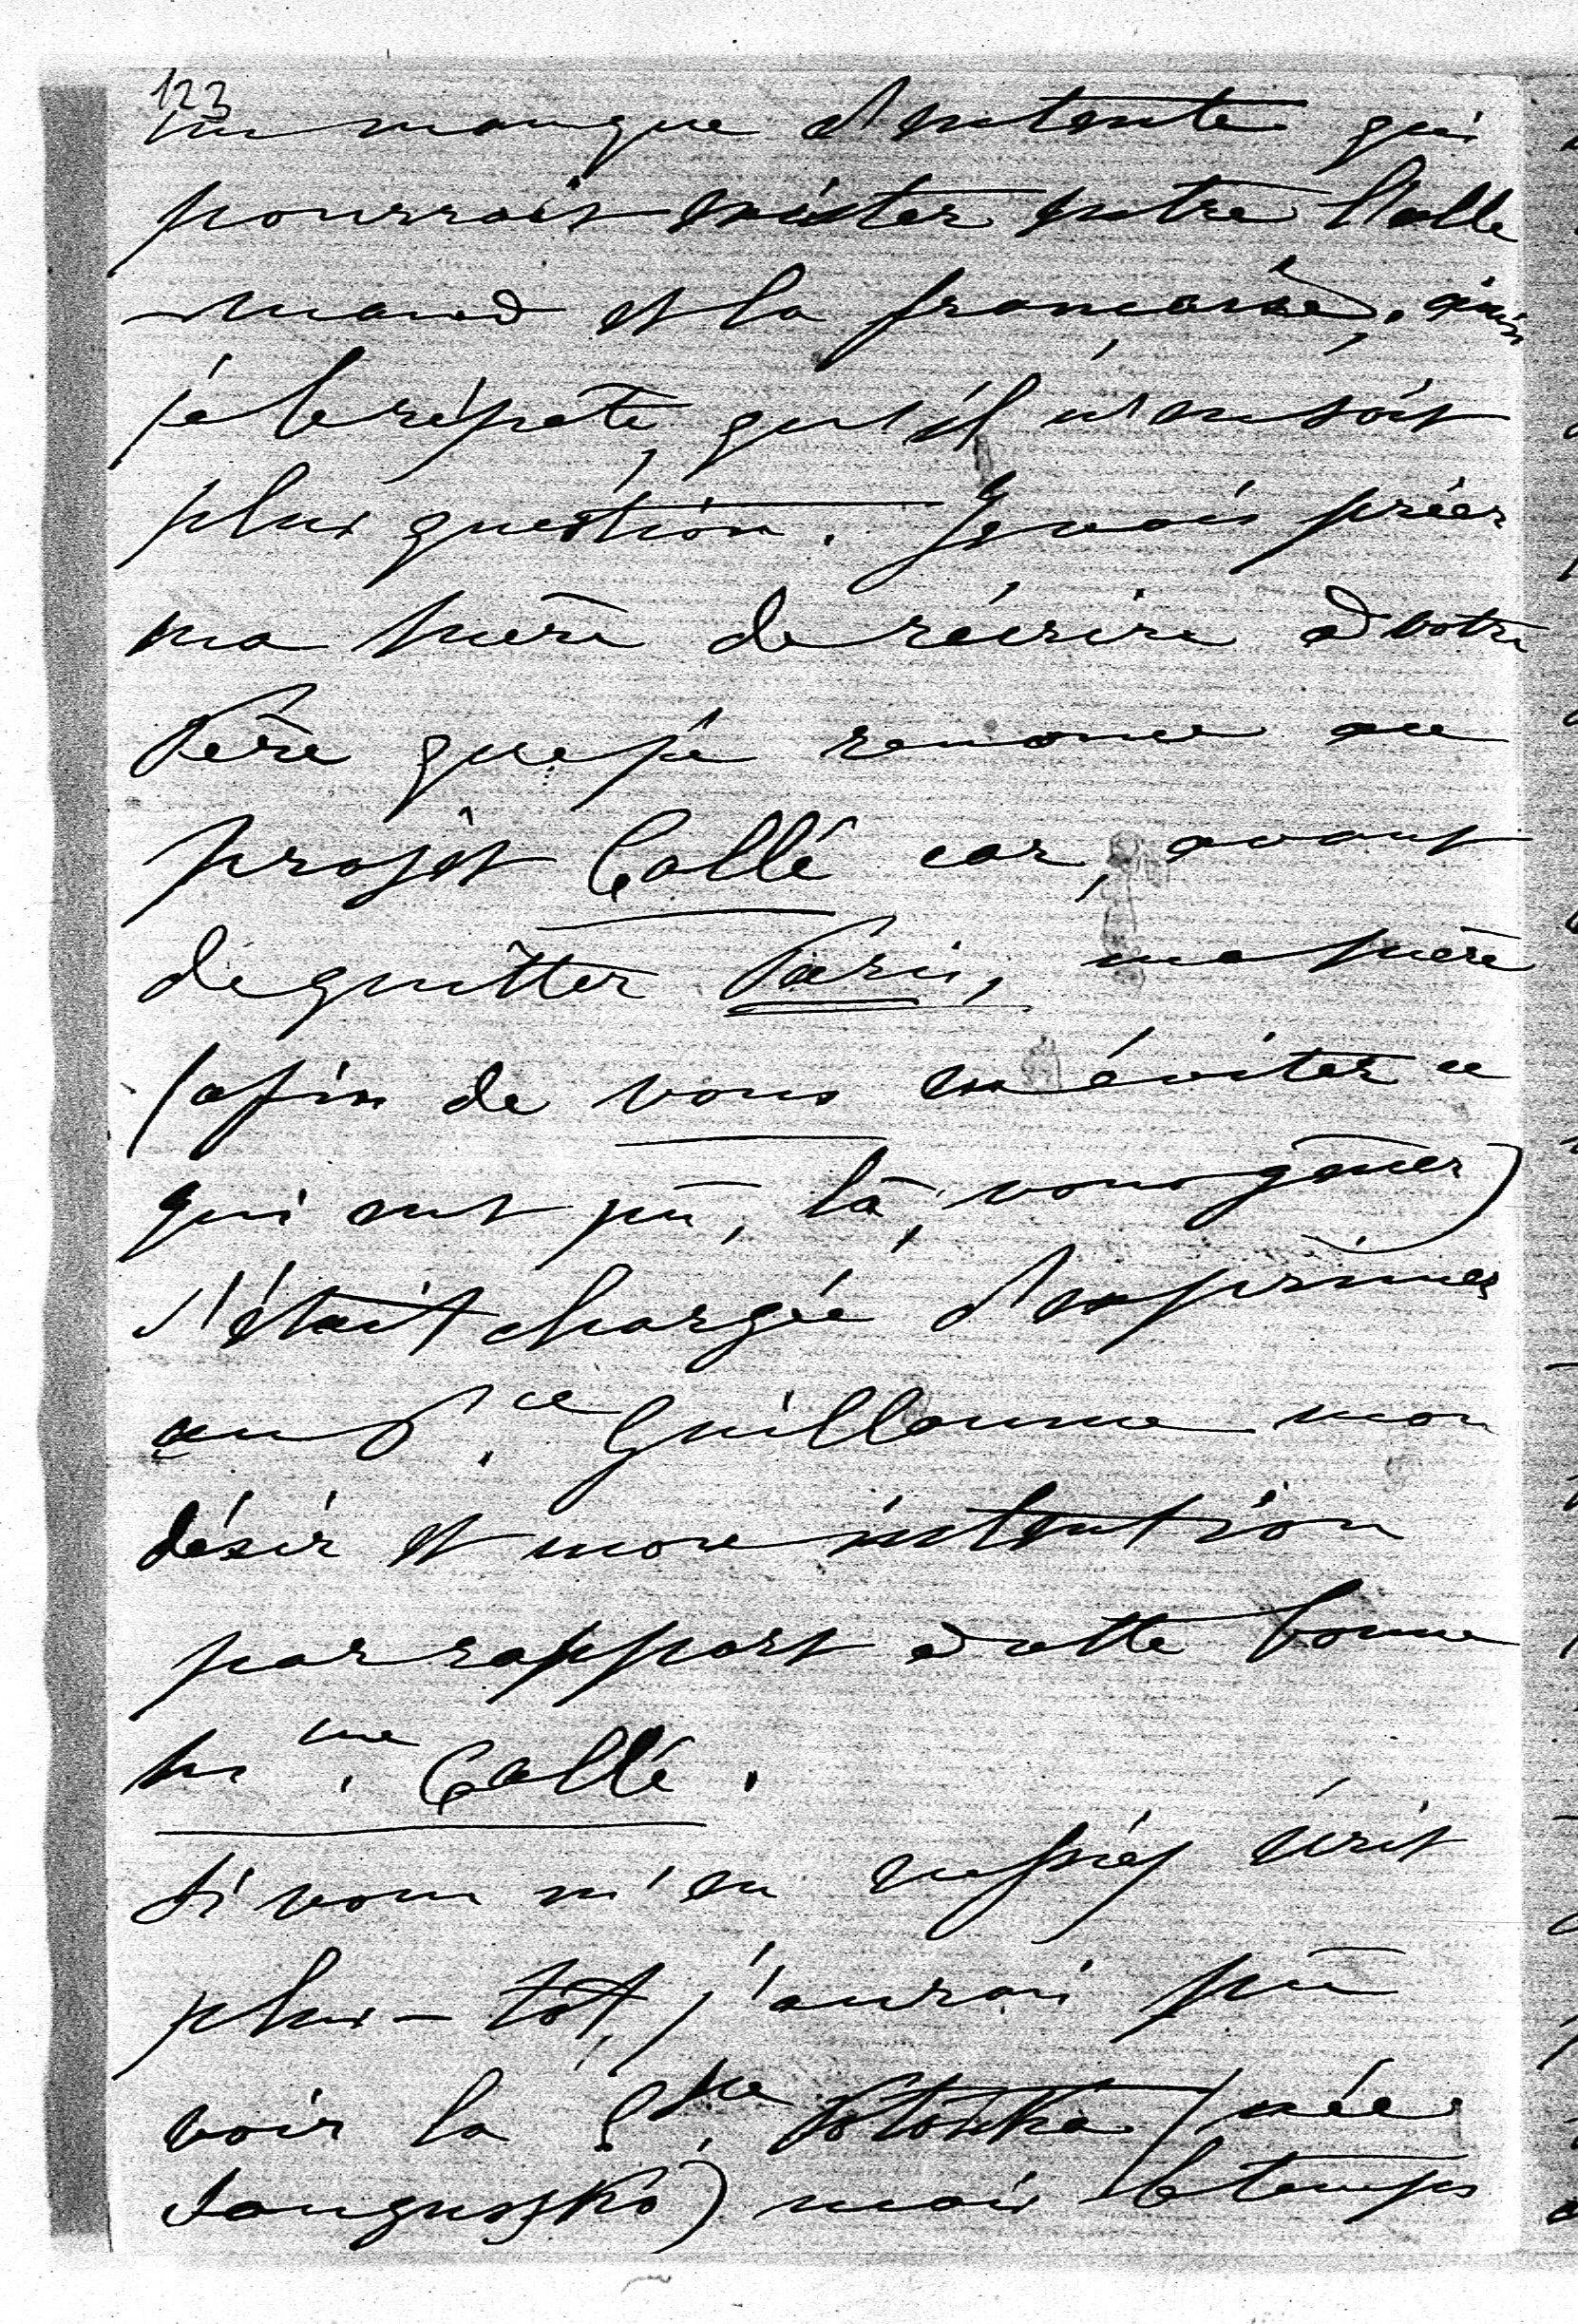 123
un manque d'entente qui
pourrait exister entre l'alle
mand et la française, ainsi
je le répète, qu'il n'en soit
plus question. Je vais prier
ma mère de réécrire à votre
Père que je renonce au
projet Callé car, avant
de quitter Paris, ma mère
(afin de vous en éviter ce
qui eut pû, là, vous gêner)
s'était chargée d'exprimer
au P.ce Guillaume mon
désir et mon intention
par rapport à cette bonne
M.me Callé.
Si vous m'en eussiez écrit
plus-tôt, j'aurai pû
voir la C.sse Pototska (née
Sanguszko) mais le temps